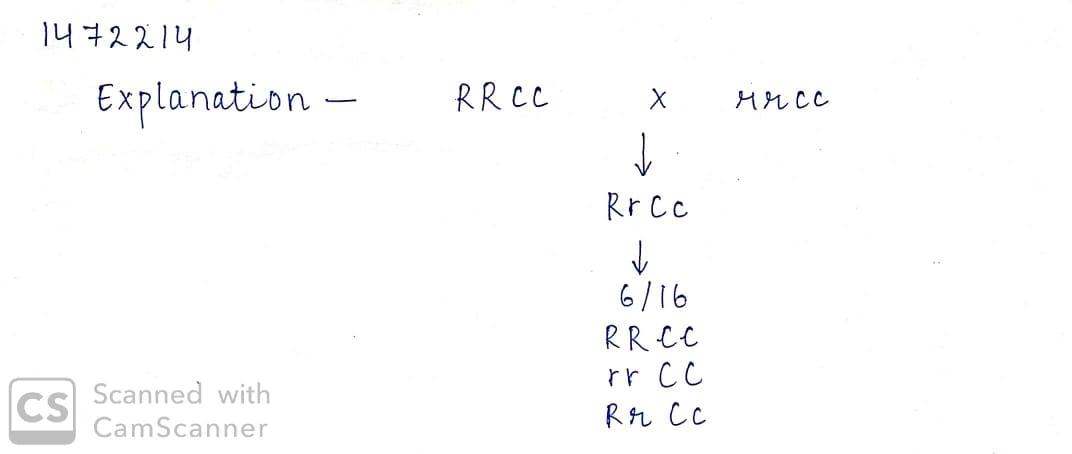 1472214
Explanation — RRCC X rrcc
↓
RrCc
↓
6/16
RRCC
rr CC
Rr Cc
CS Scanned with
CamScanner